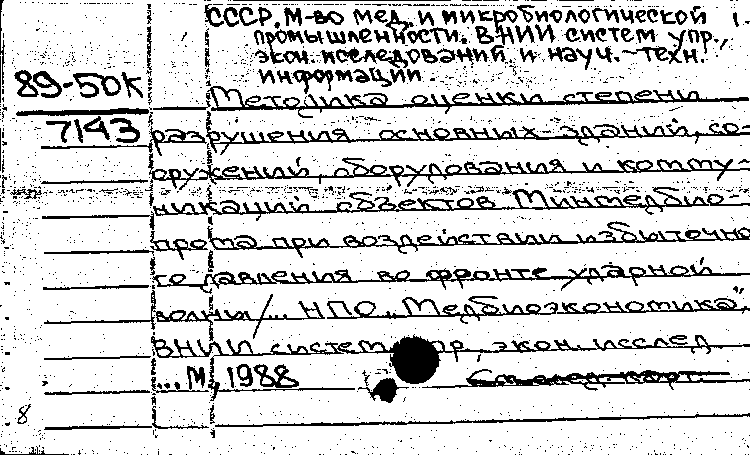 СССР. М-во мед. и микробиологической
промышленности. ВНИИ систем упр.,
экон. исследований и науч.-техн.
информации.
89-50К
Методика оценки степени
7143
разрушения основных зданий, со-
оружений, оборудования и комму-
никаций объектов Минмедбио-
прома при воздействии избыточно
го давления во фронте ударной
волны / ... НПО „Медбиоэкономика",
ВНИИ систем упр, экон. исслед.
... М, 1988
См. след. карт.
8